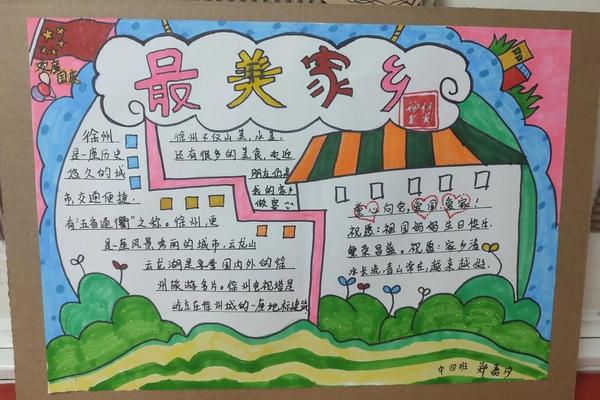 欢度
国庆
最美家乡
徐州
是一座历史
悠久的城
市,交通便捷.
有"五省通衢"之称。徐州,更
是一座风景秀丽的城市,云龙山
云龙湖是享誉国内外的徐
州旅游名片。徐州电视塔是
屹立在徐州城的一座地标建筑
徐州不仅山美,水美,
还有很多的美食,欢迎
朋友们来
我的家乡
做客
童心向党,爱国爱家!
祝愿:祖国妈妈生日快乐.
繁荣昌盛。祝愿:家乡清
水长流,青山常在,越来越好.
中四班 郑嘉汐